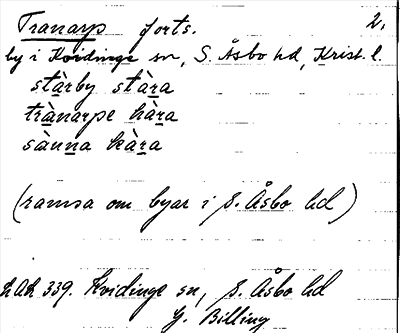 Tranarp forts. 2.
by i Kvidinge sn, S. Åsbo hd, Krist. l.
stàrby stàra
trànarpe hàra
sànna kàra
(ramsa om byar i S. Åsbo hd)
LAL 339. Kvidinge sn, S. Åsbo hd
G. Billing